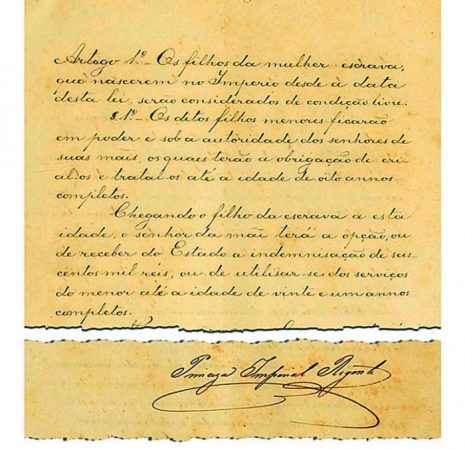 Artogo 1º – Os filhos da mulher escrava,
que nascerem no Imperio desde à data
desta lei, serão considerados de condição livre.
§.1º – Os ditos filhos menores ficarão
em poder e sob a autoridade dos senhores de
suas mãis, os quaes terão à obrigação de cri-
al-os e tratal-os até a idade de oito annos
completos.
Chegando o filho da escrava á esta
idade, o senhor da mãi terá a opção, ou
de receber do Estado a indemnisação de seis
centos mil réis, ou de utilisar-se dos serviços
do menor até a idade de vinte e um annos
completos.
Princeza Imperial Regente